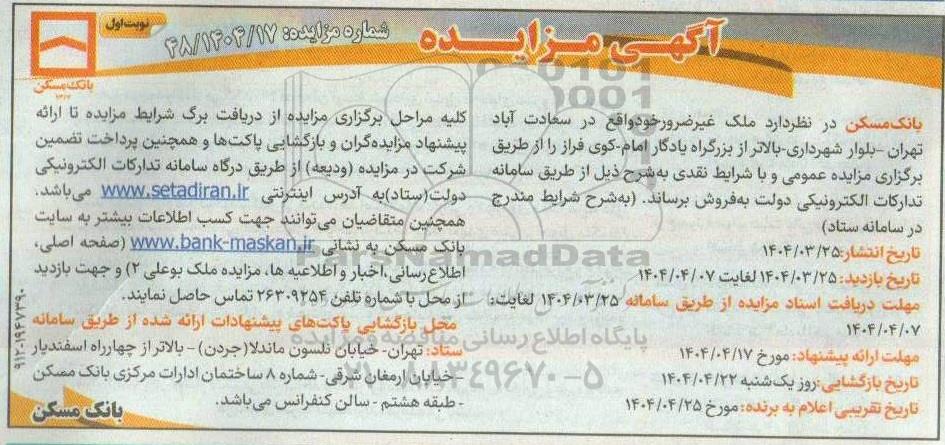 آگهی مزایده
شماره مزایده: ۴۸/۱۴۰۴/۱۷
نوبت اول
بانک مسکن
بانک‌مسکن در نظردارد ملک غیرضرورخودواقع در سعادت آباد
تهران –بلوار شهرداری-بالاتر از بزرگراه یادگار امام-کوی فراز را از طریق
برگزاری مزایده عمومی و با شرایط نقدی به‌شرح ذیل از طریق سامانه
تدارکات الکترونیکی دولت به‌فروش برساند. (به‌شرح شرایط مندرج
در سامانه ستاد)
تاریخ انتشار:۱۴۰۴/۰۳/۲۵
تاریخ بازدید: ۱۴۰۴/۰۳/۲۵ لغایت ۱۴۰۴/۰۴/۰۷
مهلت دریافت اسناد مزایده از طریق سامانه ۱۴۰۴/۰۳/۲۵ لغایت:
۱۴۰۴/۰۴/۰۷
مهلت ارائه پیشنهاد: مورخ ۱۴۰۴/۰۴/۱۷
تاریخ بازگشایی:روز یک‌شنبه ۱۴۰۴/۰۴/۲۲
تاریخ تقریبی اعلام به برنده: مورخ ۱۴۰۴/۰۴/۲۵
کلیه مراحل برگزاری مزایده از دریافت برگ شرایط مزایده تا ارائه
پیشنهاد مزایده‌گران و بازگشایی پاکت‌ها و همچنین پرداخت تضمین
شرکت در مزایده (ودیعه) از طریق درگاه سامانه تدارکات الکترونیکی
دولت(ستاد)به آدرس اینترنتی www.setadiran.ir می‌باشد.
همچنین متقاضیان می‌توانند جهت کسب اطلاعات بیشتر به سایت
بانک مسکن به نشانی www.bank-maskan.ir (صفحه اصلی،
اطلاع‌رسانی،اخبار و اطلاعیه ها، مزایده ملک بوعلی ۲) و جهت بازدید
از محل با شماره تلفن ۲۶۳۰۹۲۵۴ تماس حاصل نمایند.
محل بازگشایی پاکت‌های پیشنهادات ارائه شده از طریق سامانه
ستاد: تهران- خیابان نلسون ماندلا(جردن) – بالاتر از چهارراه اسفندیار
- خیابان ارمغان شرقی- شماره ۸ ساختمان ادارات مرکزی بانک مسکن
- طبقه هشتم - سالن کنفرانس می‌باشد.
بانک مسکن
ParsNamadData
پایگاه اطلاع رسانی مناقصه و مزایده
۰۲۱-۸۸۳۴۹۶۷۰-۵